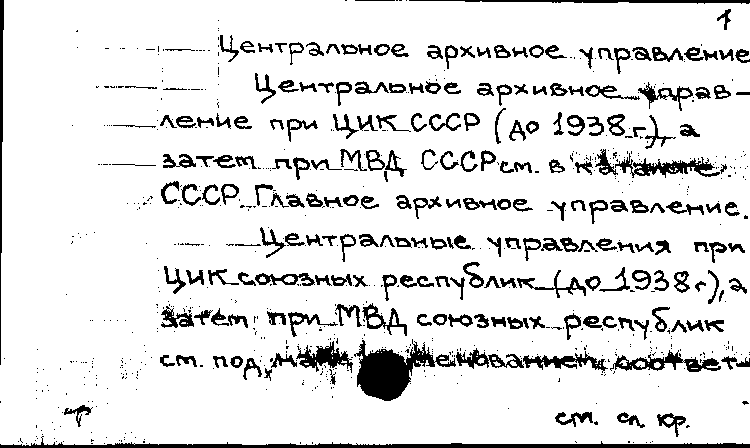 1
Центральное архивное управление
Центральное архивное управ-
ление при ЦИК СССР (до 1938 г.), а
затем при МВД СССР см. в каталоге
СССР. Главное архивное управление.
Центральные управления при
ЦИК союзных республик (до 1938 г), а
затем при МВД союзных республик
см. под соответ-
см. сл. кр.